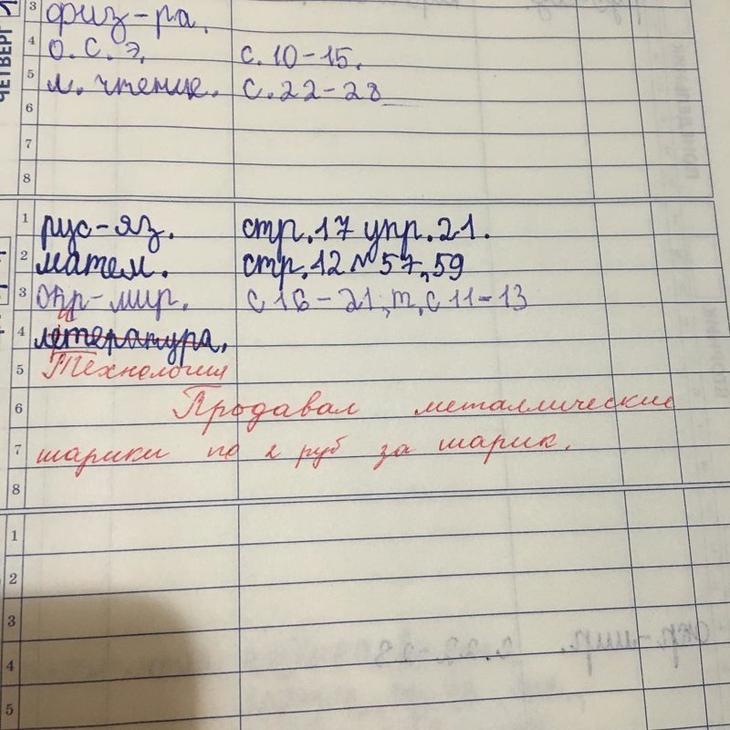 ЧЕТВЕРГ
3 физ-ра.
4 о. с. э. с. 10-15.
5 л. чтение. с. 22-28
6
7
8
1 рус-яз. стр. 17 упр. 21.
2 матем. стр. 12 № 57, 59
3 окр-мир. с 16 - 21, т, с 11-13
4 летература.
и
5 Технология
6 Продавал металлические
7 шарики по 2 руб за шарик.
8
1
2
3
4
5